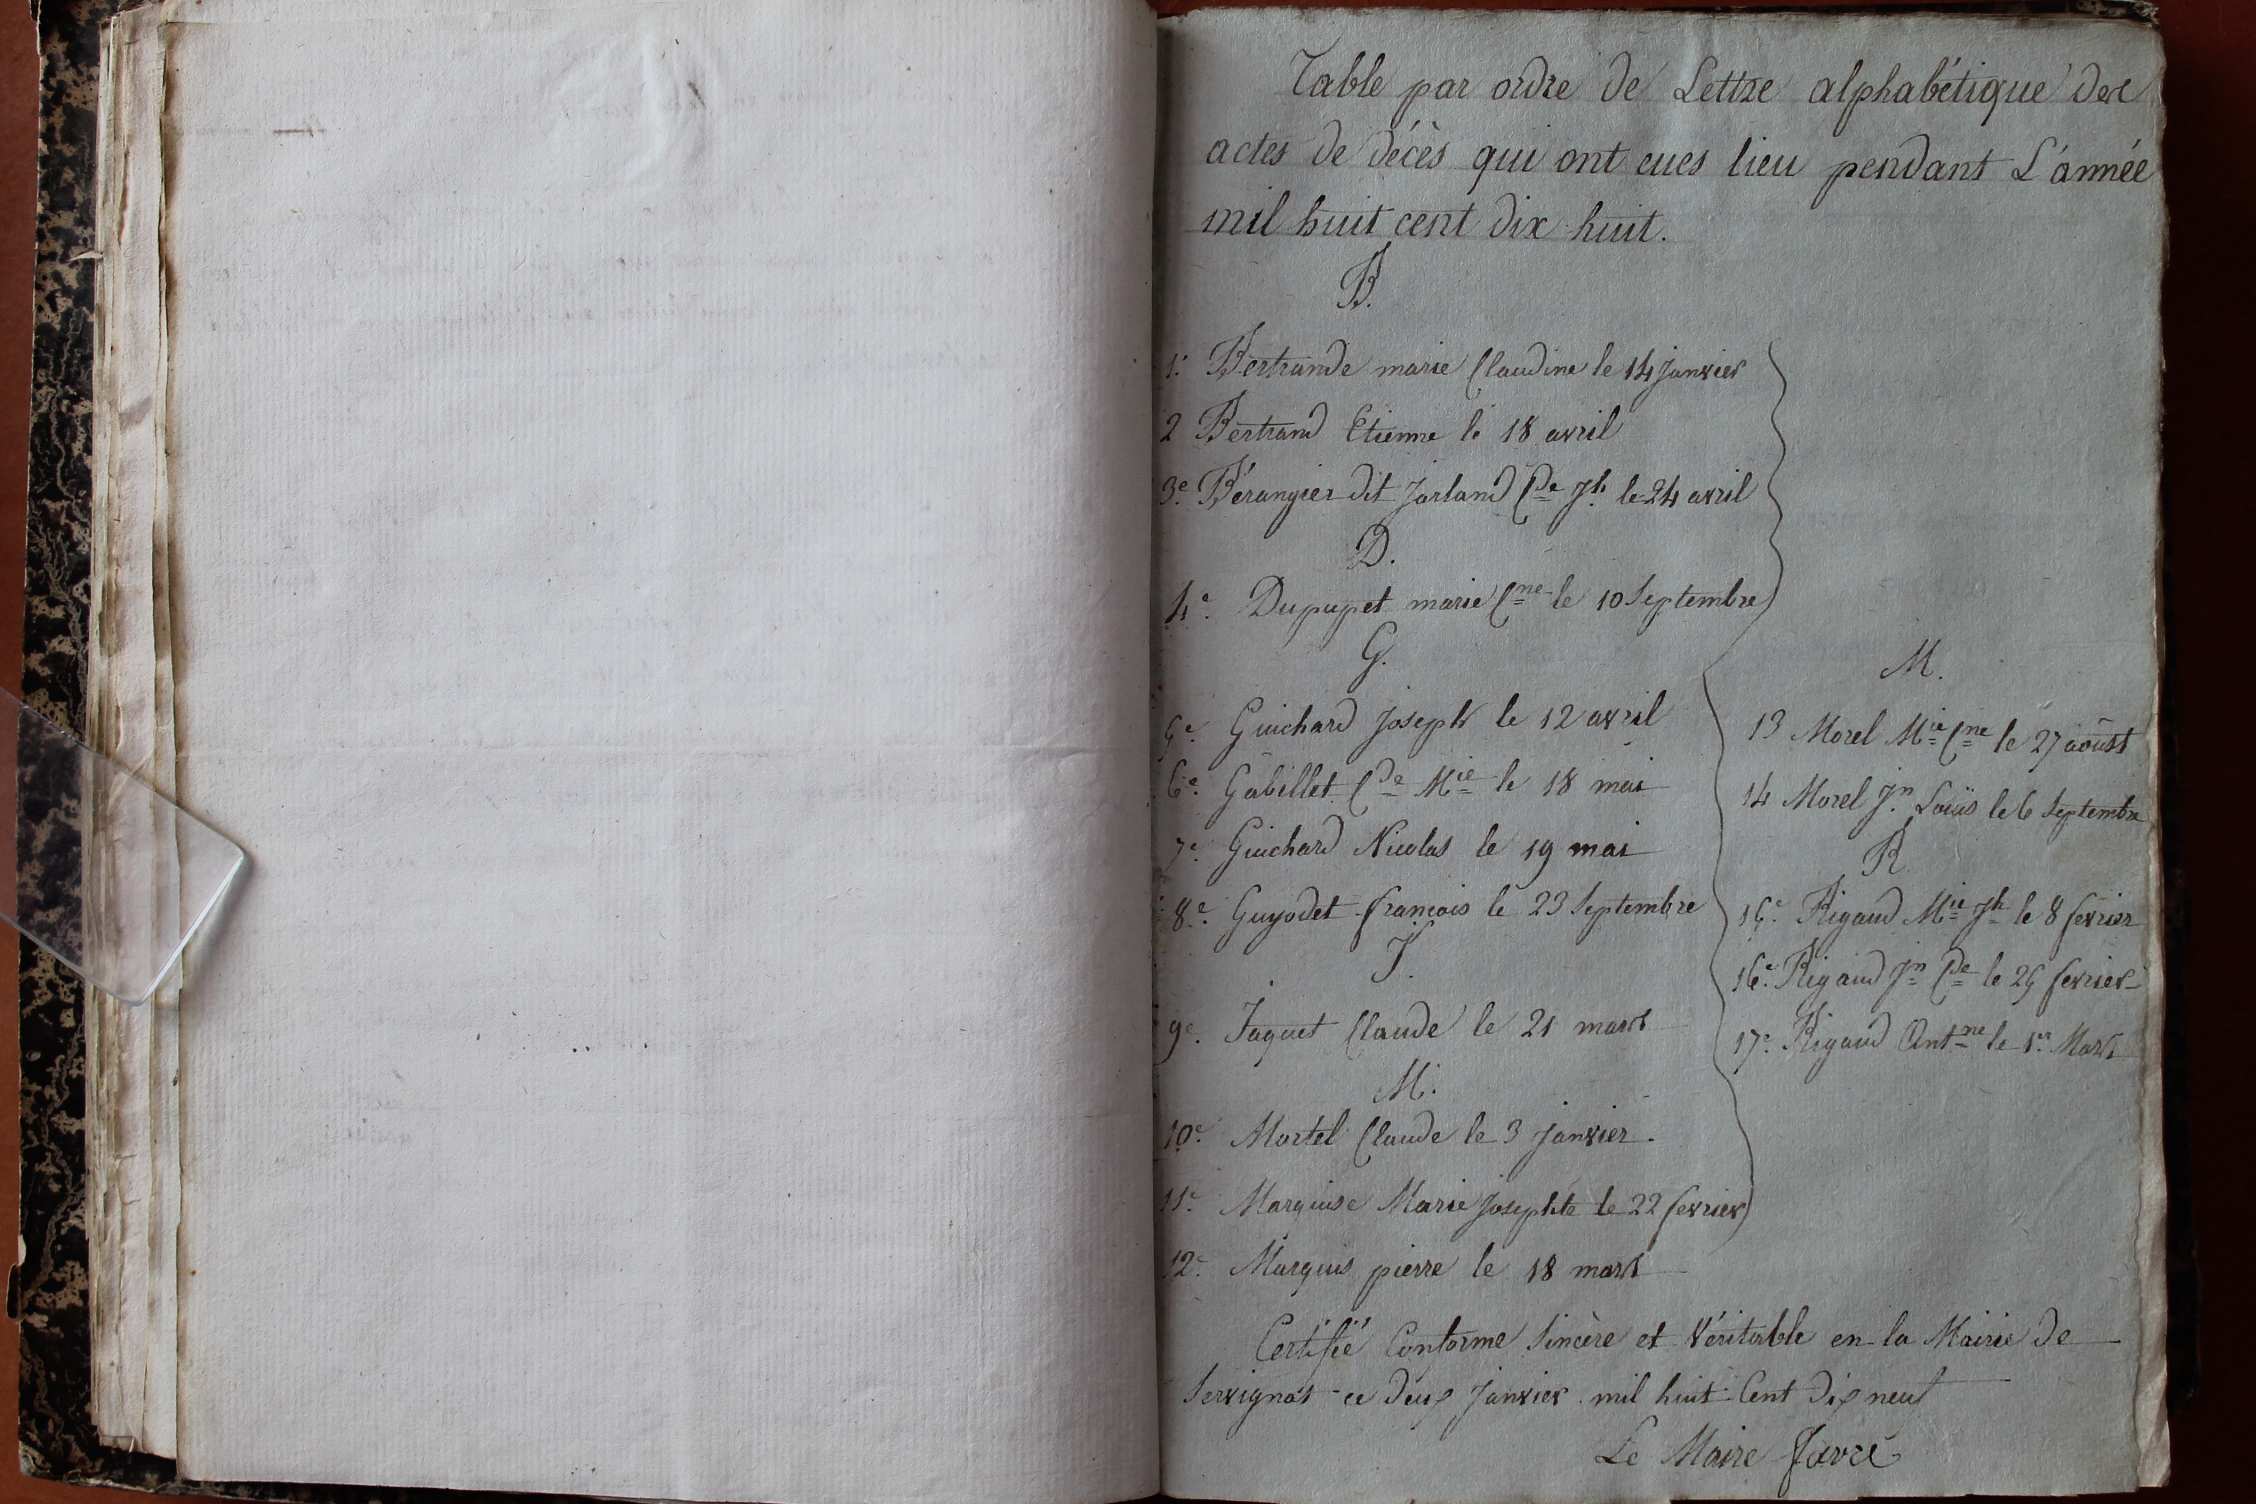 Table par ordre de Lettre alphabétique des
actes de décès qui ont eues lieu pendant L'année
mil huit cent dix huit.
B.
1. Bertrande marie Claudine le 14 Janvier
2 Bertrand Etienne le 18 avril
3e. Bérangier dit Jarland Cde Jh. le 24 avril
D.
4e. Dupupet marie Cne le 10 Septembre
G.
5e. Guichard Joseph le 12 avril
6e. Gabillet Cde Mie le 18 mai
7e. Guichard Nicolas le 19 mai
8e. Guyodet francois le 23 Septembre
J.
9e. Jaquet Claude le 21 mars
M.
10e. Mortel Claude le 3 Janvier.
11e. Marquise Marie Josephte le 22 fevrier
12e. Marquis pierre le 18 mars
M.
13 Morel Mie Cne le 27 aoust
14 Morel Jn. Louis le 6 Septembre
R
15e. Rigaud Mie Jh le 8 fevrier
16e. Rigaud Jn Cde le 25 fevrier
17e. Rigaud Antne le 1er. Mars
Certifié Conforme Sincère et Véritable en la Mairie de
Servignat ce deux Janvier mil huit Cent dix neuf
Le Maire Favre